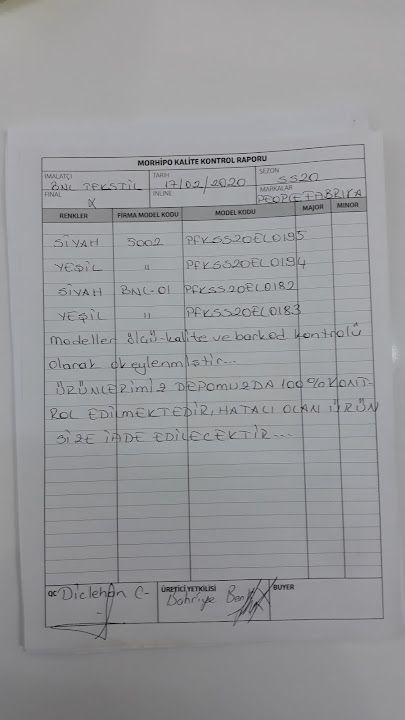 MORHİPO KALİTE KONTROL RAPORU
İMALATÇI BNL TEKSTİL TARİH 17/02/2020 SEZON SS20
FINAL X INLINE MARKALAR PEOPLE FABRIKA
RENKLER FİRMA MODEL KODU MODEL KODU MAJOR MINOR
SİYAH 5002 PFKSS20EL0195
YEŞİL " PFKSS20EL0194
SİYAH BNL-01 PFKSS20EL0182
YEŞİL " PFKSS20EL0183
modeller ölçü-kalite ve barkod kontrolü
olarak okeylenmiştir...
ÜRÜNLERİMİZ DEPOMUZDA 100% KONT-
ROL EDİLMEKTEDİR, HATALI OLAN ÜRÜN
SİZE İADE EDİLECEKTİR...
QC Diclehan C- ÜRETİCİ YETKİLİSİ Bahriye BUYER